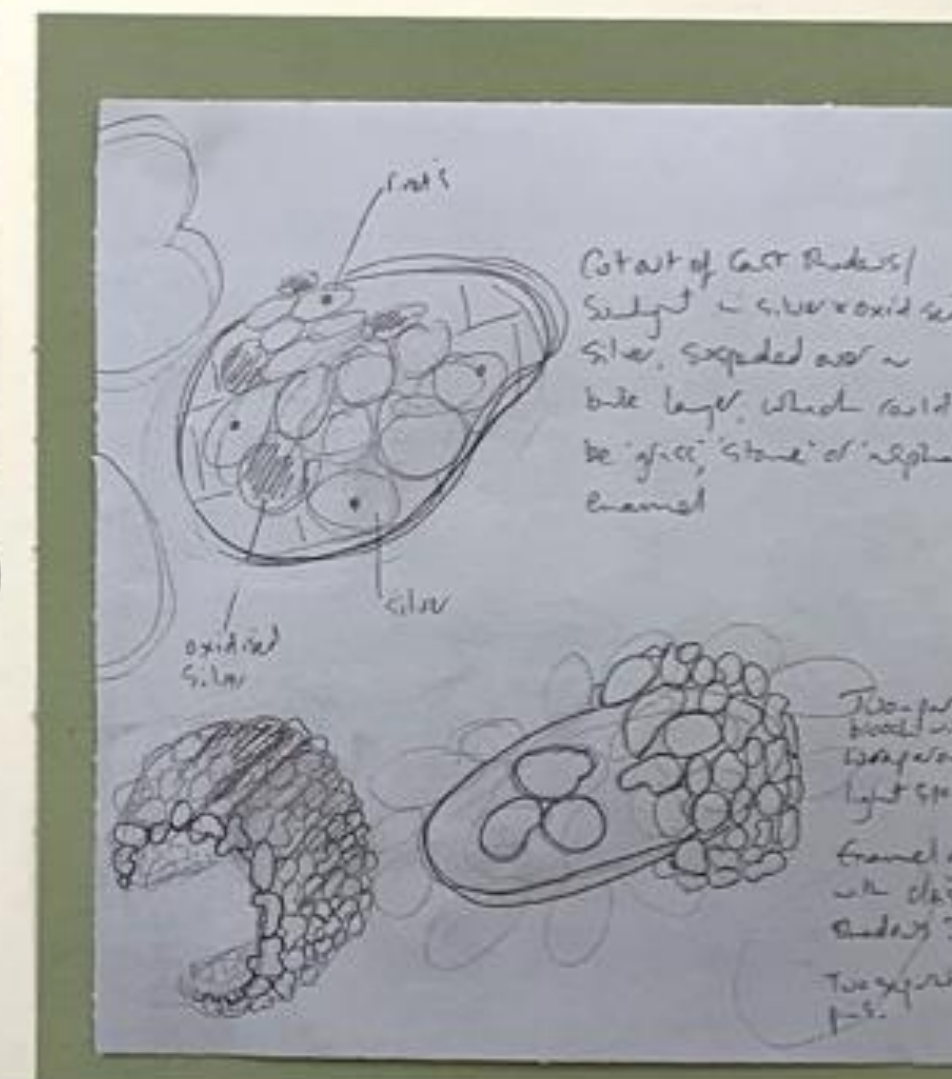 rivets
Cut out of cast shadows/
Sunlight in silver & oxidise
silver, suspended over a
base layer, which could
be 'grass', 'stone' or
enamel
silver
oxidised
silver
Two-pa
brooch
light sp
Enamel
with
shadows
Two
pins.